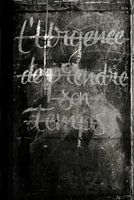 l'Urgence
de Prendre
son
Temps